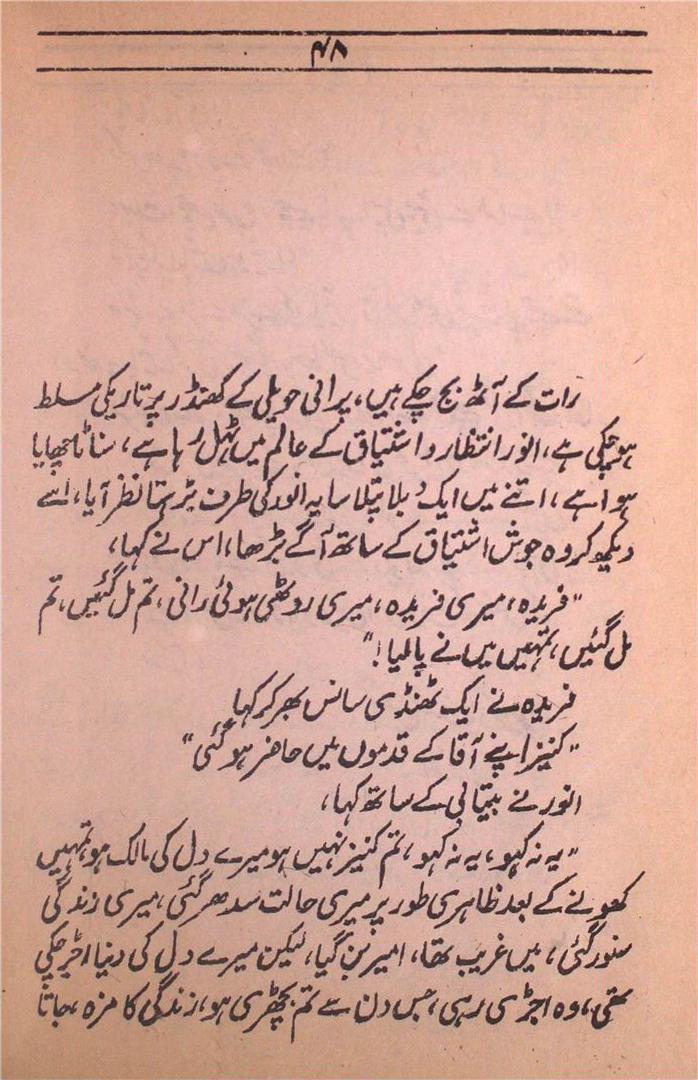 ۴۸
رات کے آٹھ بج چکے ہیں، پرانی حویلی کے کھنڈر پر تاریکی مسلط
ہو چکی ہے، انور انتظار و اشتیاق کے عالم میں ٹہل رہا ہے، سناٹا چھایا
ہوا ہے، اتنے میں ایک دبلا پتلا سایہ انور کی طرف بڑھتا نظر آیا، اسے
دیکھ کر وہ جوش اشتیاق کے ساتھ آگے بڑھا، اس نے کہا،
"فریدہ، میری فریدہ، میری روٹھی ہوئی رانی، تم مل گئیں، تم
مل گئیں، تمہیں میں نے پا لیا!"
فریدہ نے ایک ٹھنڈی سانس بھر کر کہا
"کنیز اپنے آقا کے قدموں میں حاضر ہو گئی"
انور نے بیتابی کے ساتھ کہا،
"یہ نہ کہو، یہ نہ کہو، تم کنیز نہیں ہو میرے دل کی مالک ہو، تمہیں
کھونے کے بعد ظاہری طور پر میری حالت سدھر گئی، میری زندگی
سنور گئی، میں غریب تھا، امیر بن گیا، لیکن میرے دل کی دنیا اجڑ چکی
تھی، وہ اجڑی رہی، جس دن سے تم بچھڑی ہو، زندگی کا مزہ، جاتا